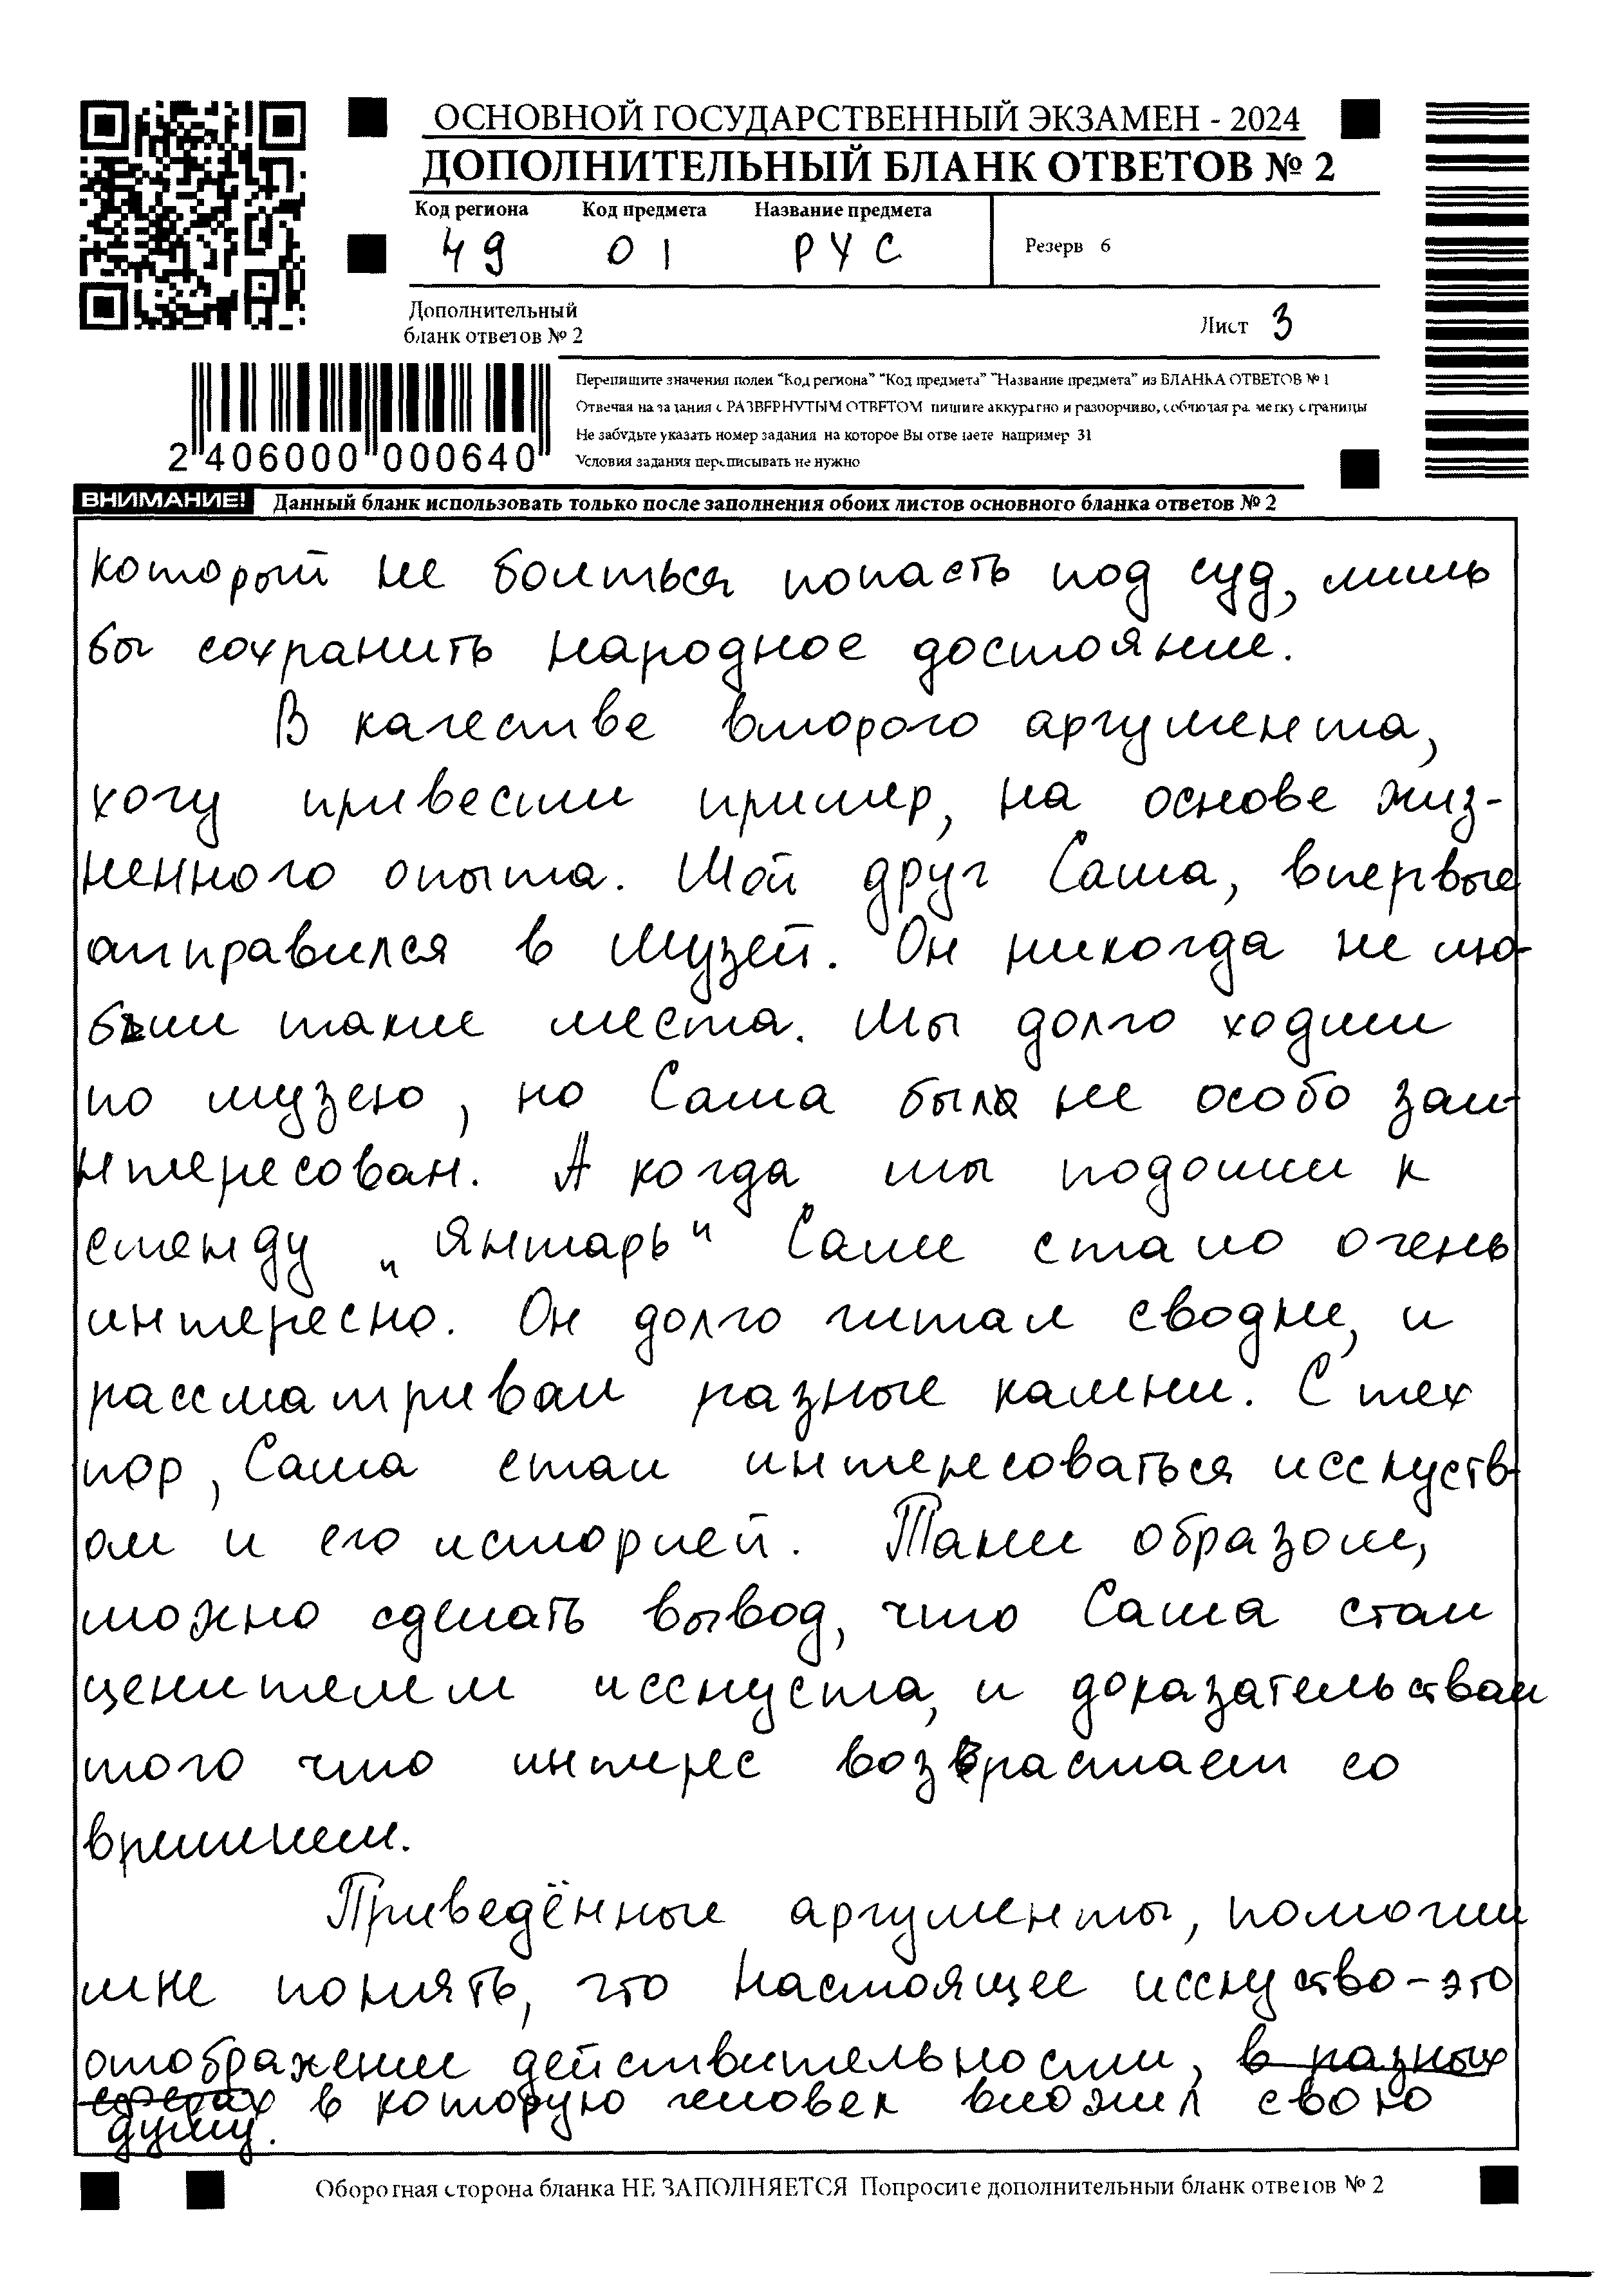 ОСНОВНОЙ ГОСУДАРСТВЕННЫЙ ЭКЗАМЕН - 2024
ДОПОЛНИТЕЛЬНЫЙ БЛАНК ОТВЕТОВ № 2
Код региона Код предмета Название предмета
49 01 РУС
Резерв 6
Дополнительный
бланк ответов № 2
Лист 3
Перепишите значения полей "Код региона" "Код предмета" "Название предмета" из БЛАНКА ОТВЕТОВ № 1
Отвечая на задания с РАЗВЕРНУТЫМ ОТВЕТОМ пишите аккуратно и разборчиво, соблюдая разметку страницы
Не забудьте указать номер задания на которое Вы отвечаете например 31
Условия задания переписывать не нужно
2 406000 000640
ВНИМАНИЕ! Данный бланк использовать только после заполнения обоих листов основного бланка ответов № 2
который не боиться попасть под суд, лишь
бы сохранить народное достояние.
В качестве второго аргумента,
хочу привести пример, на основе жиз-
ненного опыта. Мой друг Саша, впервые
отправился в музей. Он никогда не лю-
бил такие места. Мы долго ходили
по музею, но Саша был не особо заи-
нтересован. А когда мы подошли к
стенду „Янтарь" Саше стало очень
интересно. Он долго читал сводки, и
рассматривал разные камни. С тех
пор, Саша стал интересоваться исскуств-
ом и его историей. Таким образом,
можно сделать вывод, что Саша стал
ценителем исскуста, и доказательствам
того что интерес возврастает со
времинем.
Приведённые аргументы, помогли
мне понять, что настоящее исскуство - это
отображение действительности, в разных
сферах в которую человек вложил свою
душу.
Оборотная сторона бланка НЕ ЗАПОЛНЯЕТСЯ Попросите дополнительный бланк ответов № 2